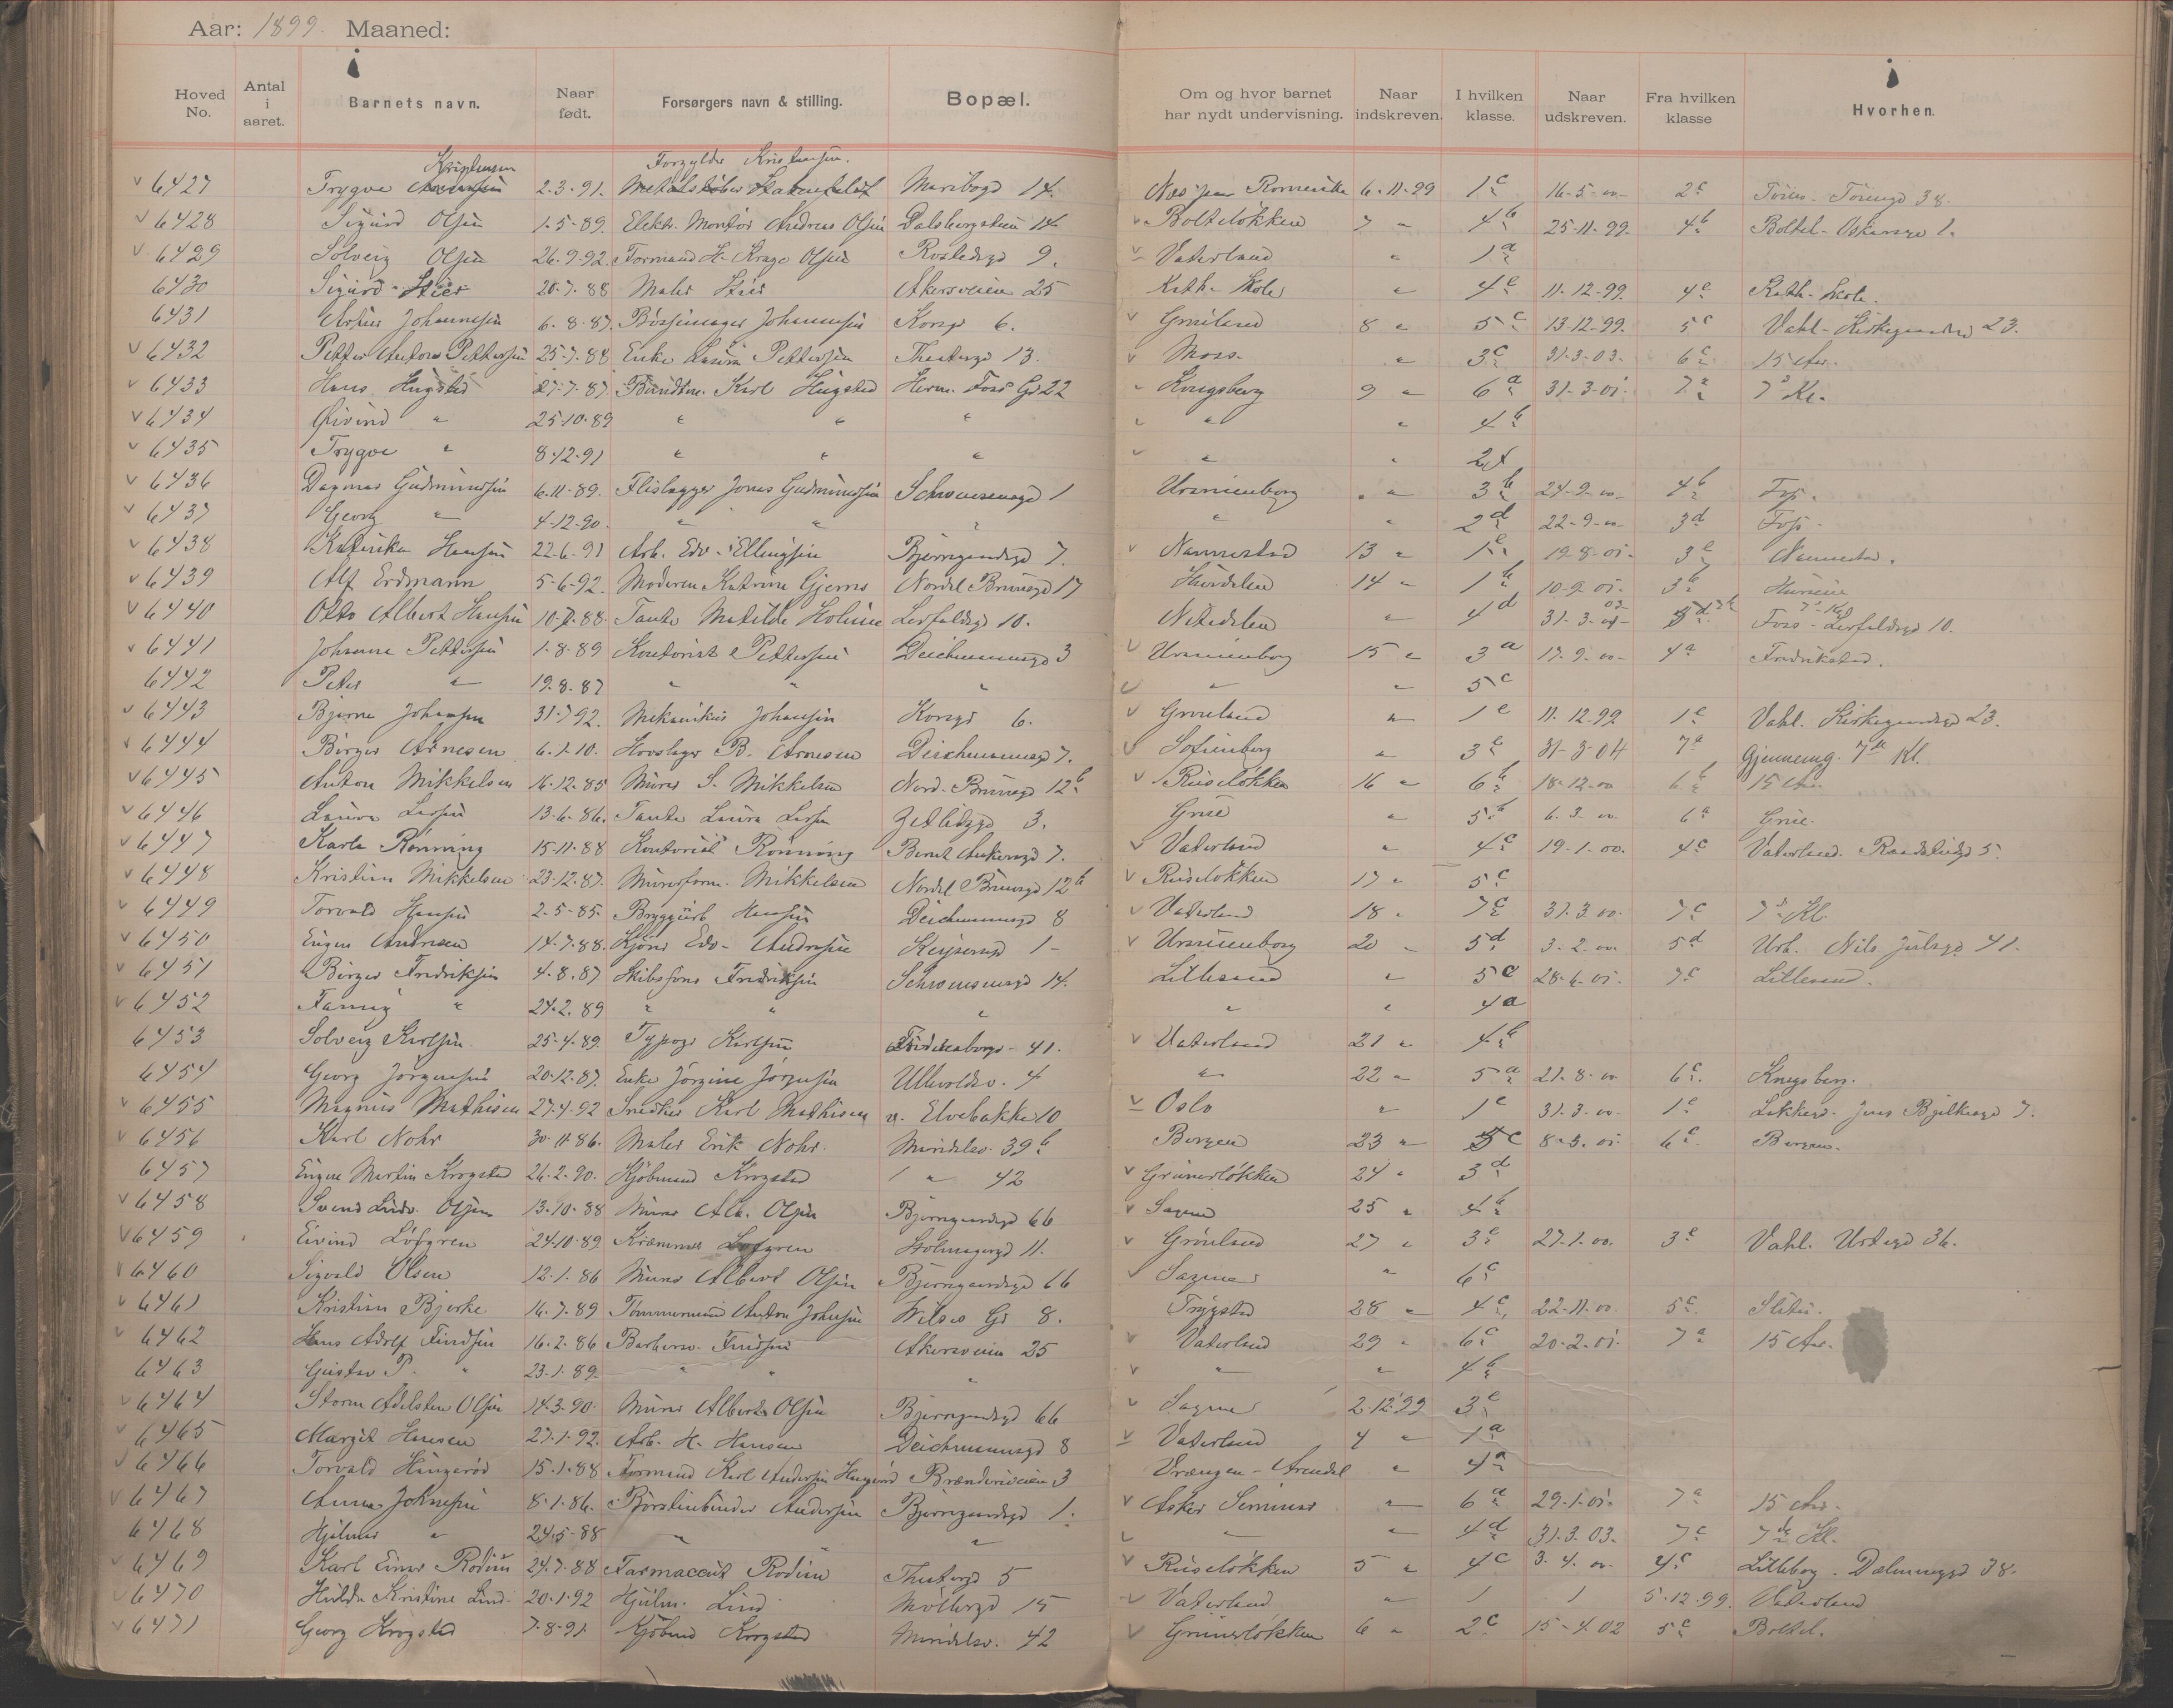 Aar: 1899. Maaned:
Hoved No. Antal i aaret. Barnets navn. Naar født. Forsørgers navn & stilling. Bopæl. Om og hvor barnet har nydt undervisning. Naar indskreven. I hvilken klasse. Naar udskreven. Fra hvilken klasse Hvorhen.
Kristensen Kristensen.
v 6427 Trygve 2-3-91. Maribogd 14. Romerike 6-11-99 1c 16-5-00 2c 38.
v 6428 Sigurd Olsen 1-5-89. Elektr. Montör Andreas Olsen Dalsbergstien 14 v Bolteløkken 7 " 4b 25-11-99. 4b Boltel- Oskarsgd 1.
v 6429 Solveig Olsen 26-9-92. Formand H. Olsen Rostedsgd 9. v Vaterland " 1a
6430 Sigurd 20-7-88 Maler Akersveien 25 Kath. Skole " 4c 11-12-99 4c Kath. Skole.
6431 Johannesen 6-8-87. Bøssemager Johannesen Korsgd 6. v Grønland 8 " 5c 13-12-99. 5c Vahl- Kirkegaardsgd 23.
v 6432 Petter Anton Pettersen 25-7-88 Enke Laura Pettersen Theatergd 13. v Moss. " 3c 31-3-03. 6c 15 Aar.
v 6433 Hans Hugsted 27-7-87. Karl Hugsted Herm. Foss Gd 22 " Kongsberg 9 " 6a 31-3-01. 7a 7de Kl.
v 6434 Øivind " 25-10-89 " " " " " " 4b
v 6435 Trygve " 8-12-91 " " " " " " 2
v 6436 Dagmar Gudmundsen 6-11-89. Flislægger Jonas Gudmundsen Schwensensgd 1 Uranienborg " 3b 24-9-00 4b Foss.
v 6437 Georg " 4-12-90. " " " " " 2d 22-9-00 3d Foss.
v 6438 Hansen 22-6-91 Arb. Edv. Ellingsen Bjerregaardsgd 7. v Nannestad 13 " 1c 19-8-01. 3c Nannestad.
v 6439 Alf Erdmann 5-6-92. Moderen Katrine Gjerns Nordal Brunsgd 17 Hurdalen 14 " 1b 10-9-01. 3b
v 6440 Otto Albert Hansen 10-7-88. Tante Matilde Holme Lerfaldsgd 10. Nitedalen " 4d 31-3- Foss- Lerfaldsgd 10.
v 6441 Johanne Pettersen 1-8-89 Kontorist Pettersen Deichmannsgd 3 v Uranienborg 15 " 3a 17-9-00 4a Fredrikstad.
6442 Peter " 19-8-87 " " " v " " 5c
v 6443 Bjarne Johansen 31-7-92. Mekanikus Johansen Korsgd 6. v Grønland " 1c 11-12-99 1c Vahl. Kirkegaardsgd 23.
v 6444 Birger Arnesen 6-1-10. Hovslager B. Arnesen Deichmannsgd 7. v Sofienberg " 3c 31-3-04 7a Gjennemg. 7de Kl.
v 6445 Anton Mikkelsen 16-12-85 Murer S. Mikkelsen Nord. Brunsgd 12b v Ruseløkken 16 " 6b 18-12-00 6b 15 Aar
v 6446 Laura Larsen 13-6-86. Tante Laura Larsen Zetlitzgd 3. Grue " 5b 6-3-00 6a Grue.
v 6447 Karla Rønning 15-11-88 Kontorist Rønning Bernt Ankersgd 7. v Vaterland " 4c 19-1-00. 4c Vaterland. 5.
v 6448 Kristian Mikkelsen 23-12-87. Murerform. Mikkelsen Nordal Brunsgd 12b v Ruseløkken 17 " 5c
v 6449 Torvald Hansen 2-5-85. Bryggiarb Hansen Deichmannsgd 8 v Vaterland 18 " 7c 31-3-00. 7c 7de Kl.
v 6450 Eugen Andresen 14-7-88. Edv. Andresen Keysersgd 1 v Uranienborg 20 " 5d 3-2-00. 5d Urb. Nils Julsgd 41.
v 6451 Birger Fredriksen 4-8-87 Skibsfører Fredriksen Schwensensgd 14. Lillesand " 5c 28-6-01. 7c Lillesand.
v 6452 Fanny " 24-2-89 " " " " " 4a
6453 Solveig Karlsen 25-4-89. Typogr Karlsen Fredensborgv. 41. v Vaterland 21 " 4b
6454 Georg Jørgensen 20-12-87. Enke Jørgine Jørgensen Ullevoldsv. 4 " 22 " 5a 21-8-00 6c. Kongsberg.
v 6455 Magnus Mathisen 27-4-92 Snedker Karl Mathisen v. Elvebakke 10 v Oslo " 1c 31-3-00. 1c Jens Bjelkesgd 7.
v 6456 Karl Nohr 30-11-86. Maler Erik Nohr. Maridalsv. 39b Bergen 23 " 5c 8-5-01. 6c Bergen.
6457 Eugen Martin Krogstad 26-2-90. Kjøbmand Krogstad " 42 v Grünerløkken 24 " 3d
v 6458 Svend Ludv. Olsen 13-10-88 Murer Alb. Olsen Bjerregaardsgd 66 v Sagene 25 " 4b
v 6459 Eivind Löfgren 24-10-89. Kræmmer Löfgren Stolmagergd 11. v Grønland 27 " 3c 27-1-00. 3c Vahl. Urtegd 36.
v 6460 Sigvald Olsen 12-1-86 Murer Albert Olsen Bjerregaardsgd 66 v Sagene " 6c
v 6461 Kristian Bjerke 16-7-89 Tømmermand Anton Johnsen Wilses Gd 8. Trøgstad 28 " 4c 22-11-00. 5c. Slitu.
v 6462 Hans Adolf Findsen 16-2-86 Findsen Akersveien 25 v Vaterland 29 " 6c 20-2-01. 7a 15 Aar.
6463 Gustav P. " 23-1-89. " " " v " " 4b
v 6464 Storm Adelsten Olsen 14-3-90. Murer Albert Olsen Bjerregaardsgd 66 v Sagene 2-12-99 3c
v 6465 Margit Hansen 27-1-92. Arb. H. Hansen Deichmannsgd 8 v Vaterland 4 " 1a
v 6466 Torvald Hungerød 15-1-88 Formand Karl Andersen Hungerød Brænderiveien 3 Vrængen - Arendal " 4a
v 6467 Anna Johnsen 8-1-86. Børstenbinder Andersen Bjerregaardsgd 1. v Asker Seminar " 6a 29-1-01. 7a 15 Aar.
6468 Hjalmar " 24-5-88 " " v " " 4d 31-3-03. 7c 7de Kl.
v 6469 Karl Einar Rodin 24-7-88 Farmaceut Rodin Theatergd 5 v Ruseløkken 5 " 4c 3-4-00. 4c Lilleborg. 38.
v 6470 Hulda Kristine Lind. 20-1-92 Hjulm. Lind Møllergd 15 v Vaterland " / / 5-12-99. Vaterland
v 6471 Georg Krogstad 7-8-91 Kjøbmd Krogstad Maridalsv. 42 v Grünerløkken 6 " 2c 15-4-02 5c Boltel.